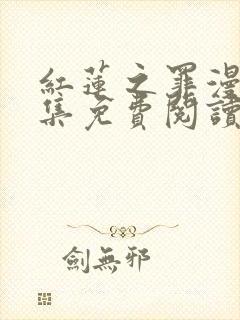 紅蓮之罪漫
集免費閱讀
劍無邪